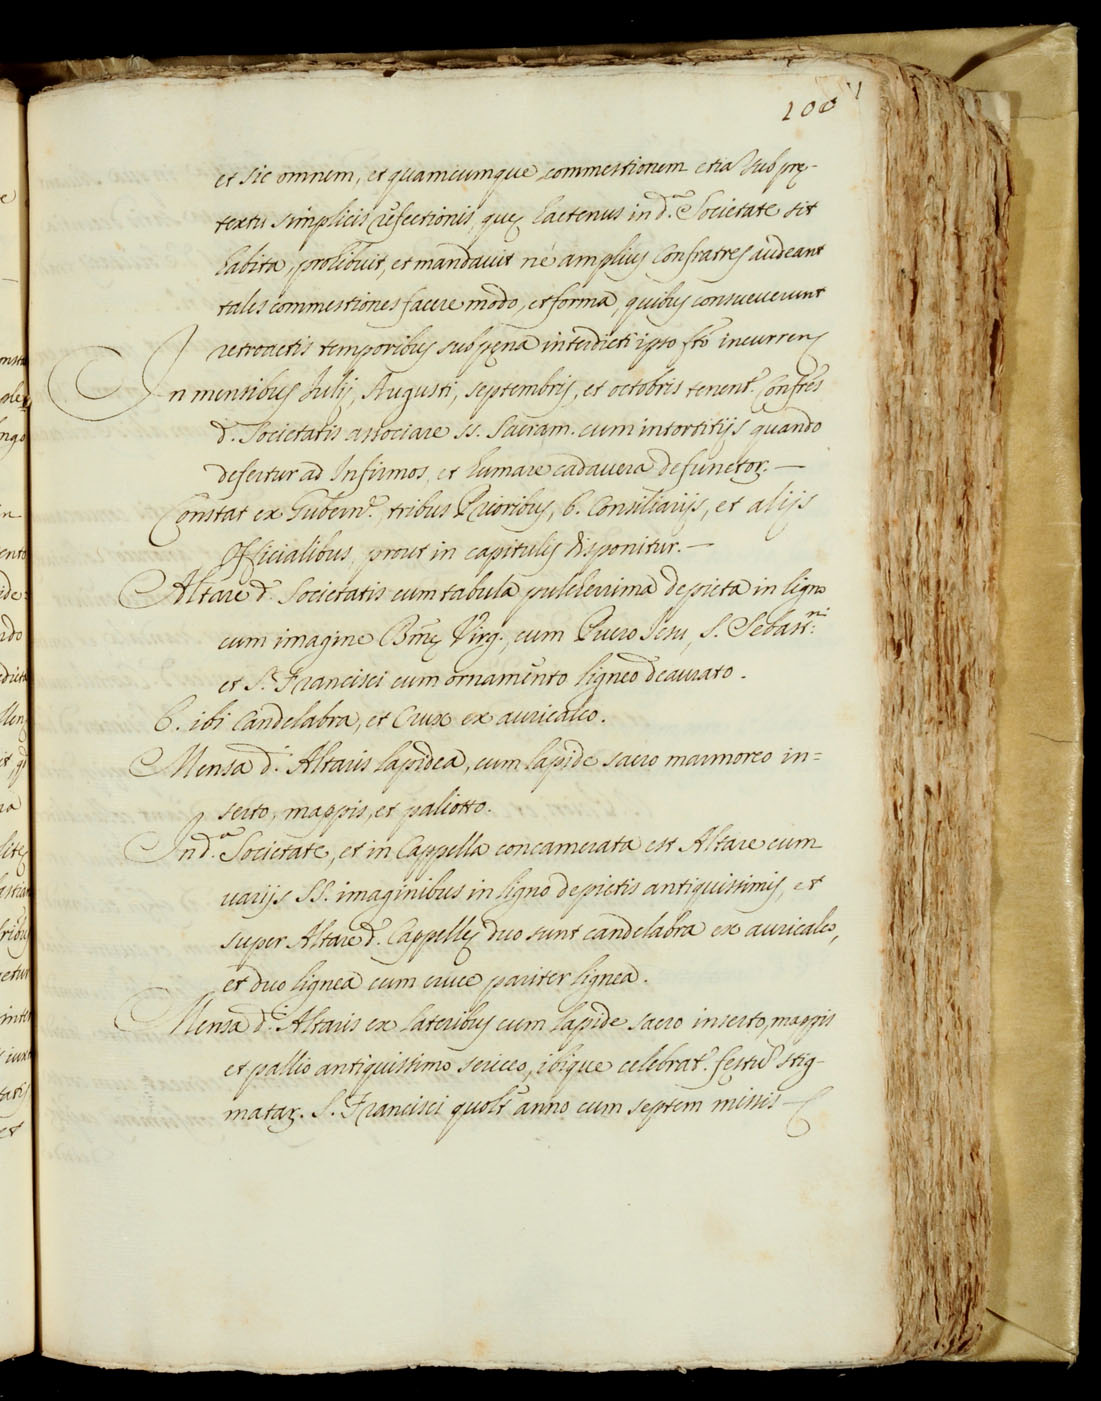 100
et sic omnem, et quamcumque commestionem etiã sub prę-
textu simplicis refectionis, quę hactenus in d.ª Societate sit
habita, prohibuit, et mandavit nè amplius Confratres audeant
tales commestiones facere modo, et forma, quibus consueverunt
retroactis temporibus sub pęna interdicti ipso fto incurren
In mensibus Julij, Augusti, septembris, et octobris tenent.r Confres
d. Societatis associare ss. Sacram. cum intortitijs quando
defertur ad Infirmos, et humare cadavera defunctor. —
Constat ex Gubern.e, tribus Prioribus, 6. Consiliarijs, et alijs
Officialibus, prout in capitulis disponitur. —
Altare d. Societatis cum tabula pulcherrima depicta in ligno
cum imagine Bmę Virg., cum Puero Jesu, S. Sebast.ni
et S. Francisci cum ornamento ligneo deaurato.
6. ibi Candelabra, et Crux ex auricalco.
Mensa d.i Altaris lapidea, cum lapide sacro marmoreo in=
serto, mappis, et paliotto.
In d.ª Societate, et in Cappella concamerata est Altare cum
varijs SS. imaginibus in ligno depictis antiquissimis, et
super Altare d. Cappellę duo sunt candelabra ex auricalco,
et duo lignea cum cruce pariter lignea.
Mensa d.i Altaris ex lateribus cum lapide sacro inserto, mappis
et pallio antiquissimo sericeo, ibique celebrat.r festũ stig-
matar. S. Francisci quolt anno cum septem missis —